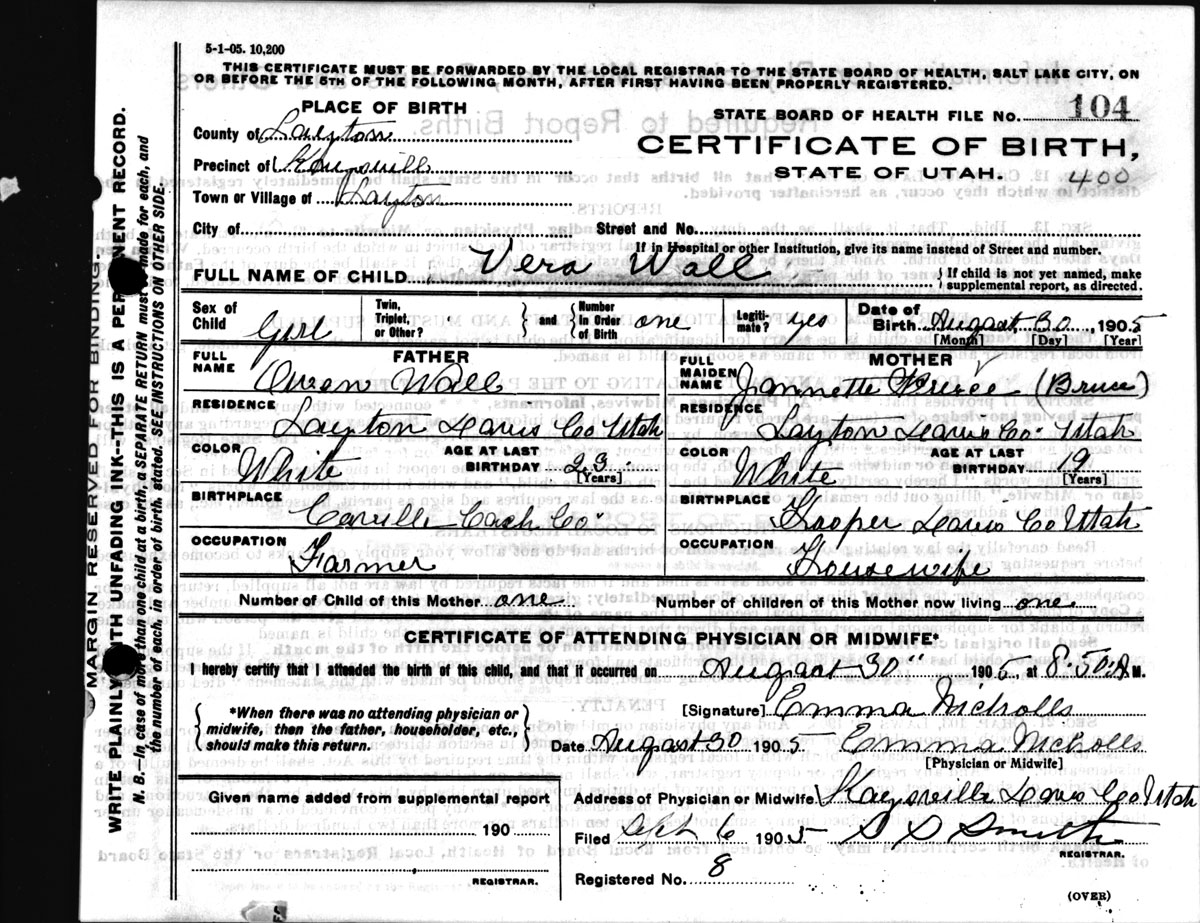 5-1-05. 10,200
THIS CERTIFICATE MUST BE FORWARDED BY THE LOCAL REGISTRAR TO THE STATE BOARD OF HEALTH, SALT LAKE CITY, ON
OR BEFORE THE 5TH OF THE FOLLOWING MONTH, AFTER FIRST HAVING BEEN PROPERLY REGISTERED.
PLACE OF BIRTH
County of Layton
Precinct of Kaysville
Town or Village of Layton
City of
STATE BOARD OF HEALTH FILE NO. 104
CERTIFICATE OF BIRTH,
STATE OF UTAH. 400
Street and No.
If in Hospital or other Institution, give its name instead of Street and number.
FULL NAME OF CHILD Vera Wall
{ If child is not yet named, make
supplemental report, as directed.
Sex of Child Girl
Twin, Triplet, or Other? } and { Number in Order of Birth one
Legitimate? yes
Date of Birth August 30, 1905
[Month] [Day] [Year]
FATHER
FULL NAME Owen Wall
RESIDENCE Layton Davis Co Utah
COLOR White AGE AT LAST BIRTHDAY 23 [Years]
BIRTHPLACE Coville Cach Co
OCCUPATION Farmer
MOTHER
FULL MAIDEN NAME Jannette (Bruce)
RESIDENCE Layton Davis Co. Utah
COLOR White AGE AT LAST BIRTHDAY 19 [Years]
BIRTHPLACE Hooper Davis Co Utah
OCCUPATION Housewife
Number of Child of this Mother one Number of children of this Mother now living one
CERTIFICATE OF ATTENDING PHYSICIAN OR MIDWIFE*
I hereby certify that I attended the birth of this child, and that it occurred on August 30" 1905, at 8:50 A M.
{ *When there was no attending physician or
midwife, then the father, householder, etc.,
should make this return. }
[Signature] Emma Nicholls
Date August 30 1905 Emma Nicholls
[Physician or Midwife]
Given name added from supplemental report
190
REGISTRAR.
Address of Physician or Midwife Kaysville Davis Co Utah
Filed Sept 6 1905 Smith
REGISTRAR.
Registered No. 8
(OVER)
MARGIN RESERVED FOR BINDING.
WRITE PLAINLY WITH UNFADING INK--THIS IS A PERMANENT RECORD.
N. B. In case of more than one child at a birth, a SEPARATE RETURN must be made for each, and
the number of each, in order of birth, stated. SEE INSTRUCTIONS ON OTHER SIDE.